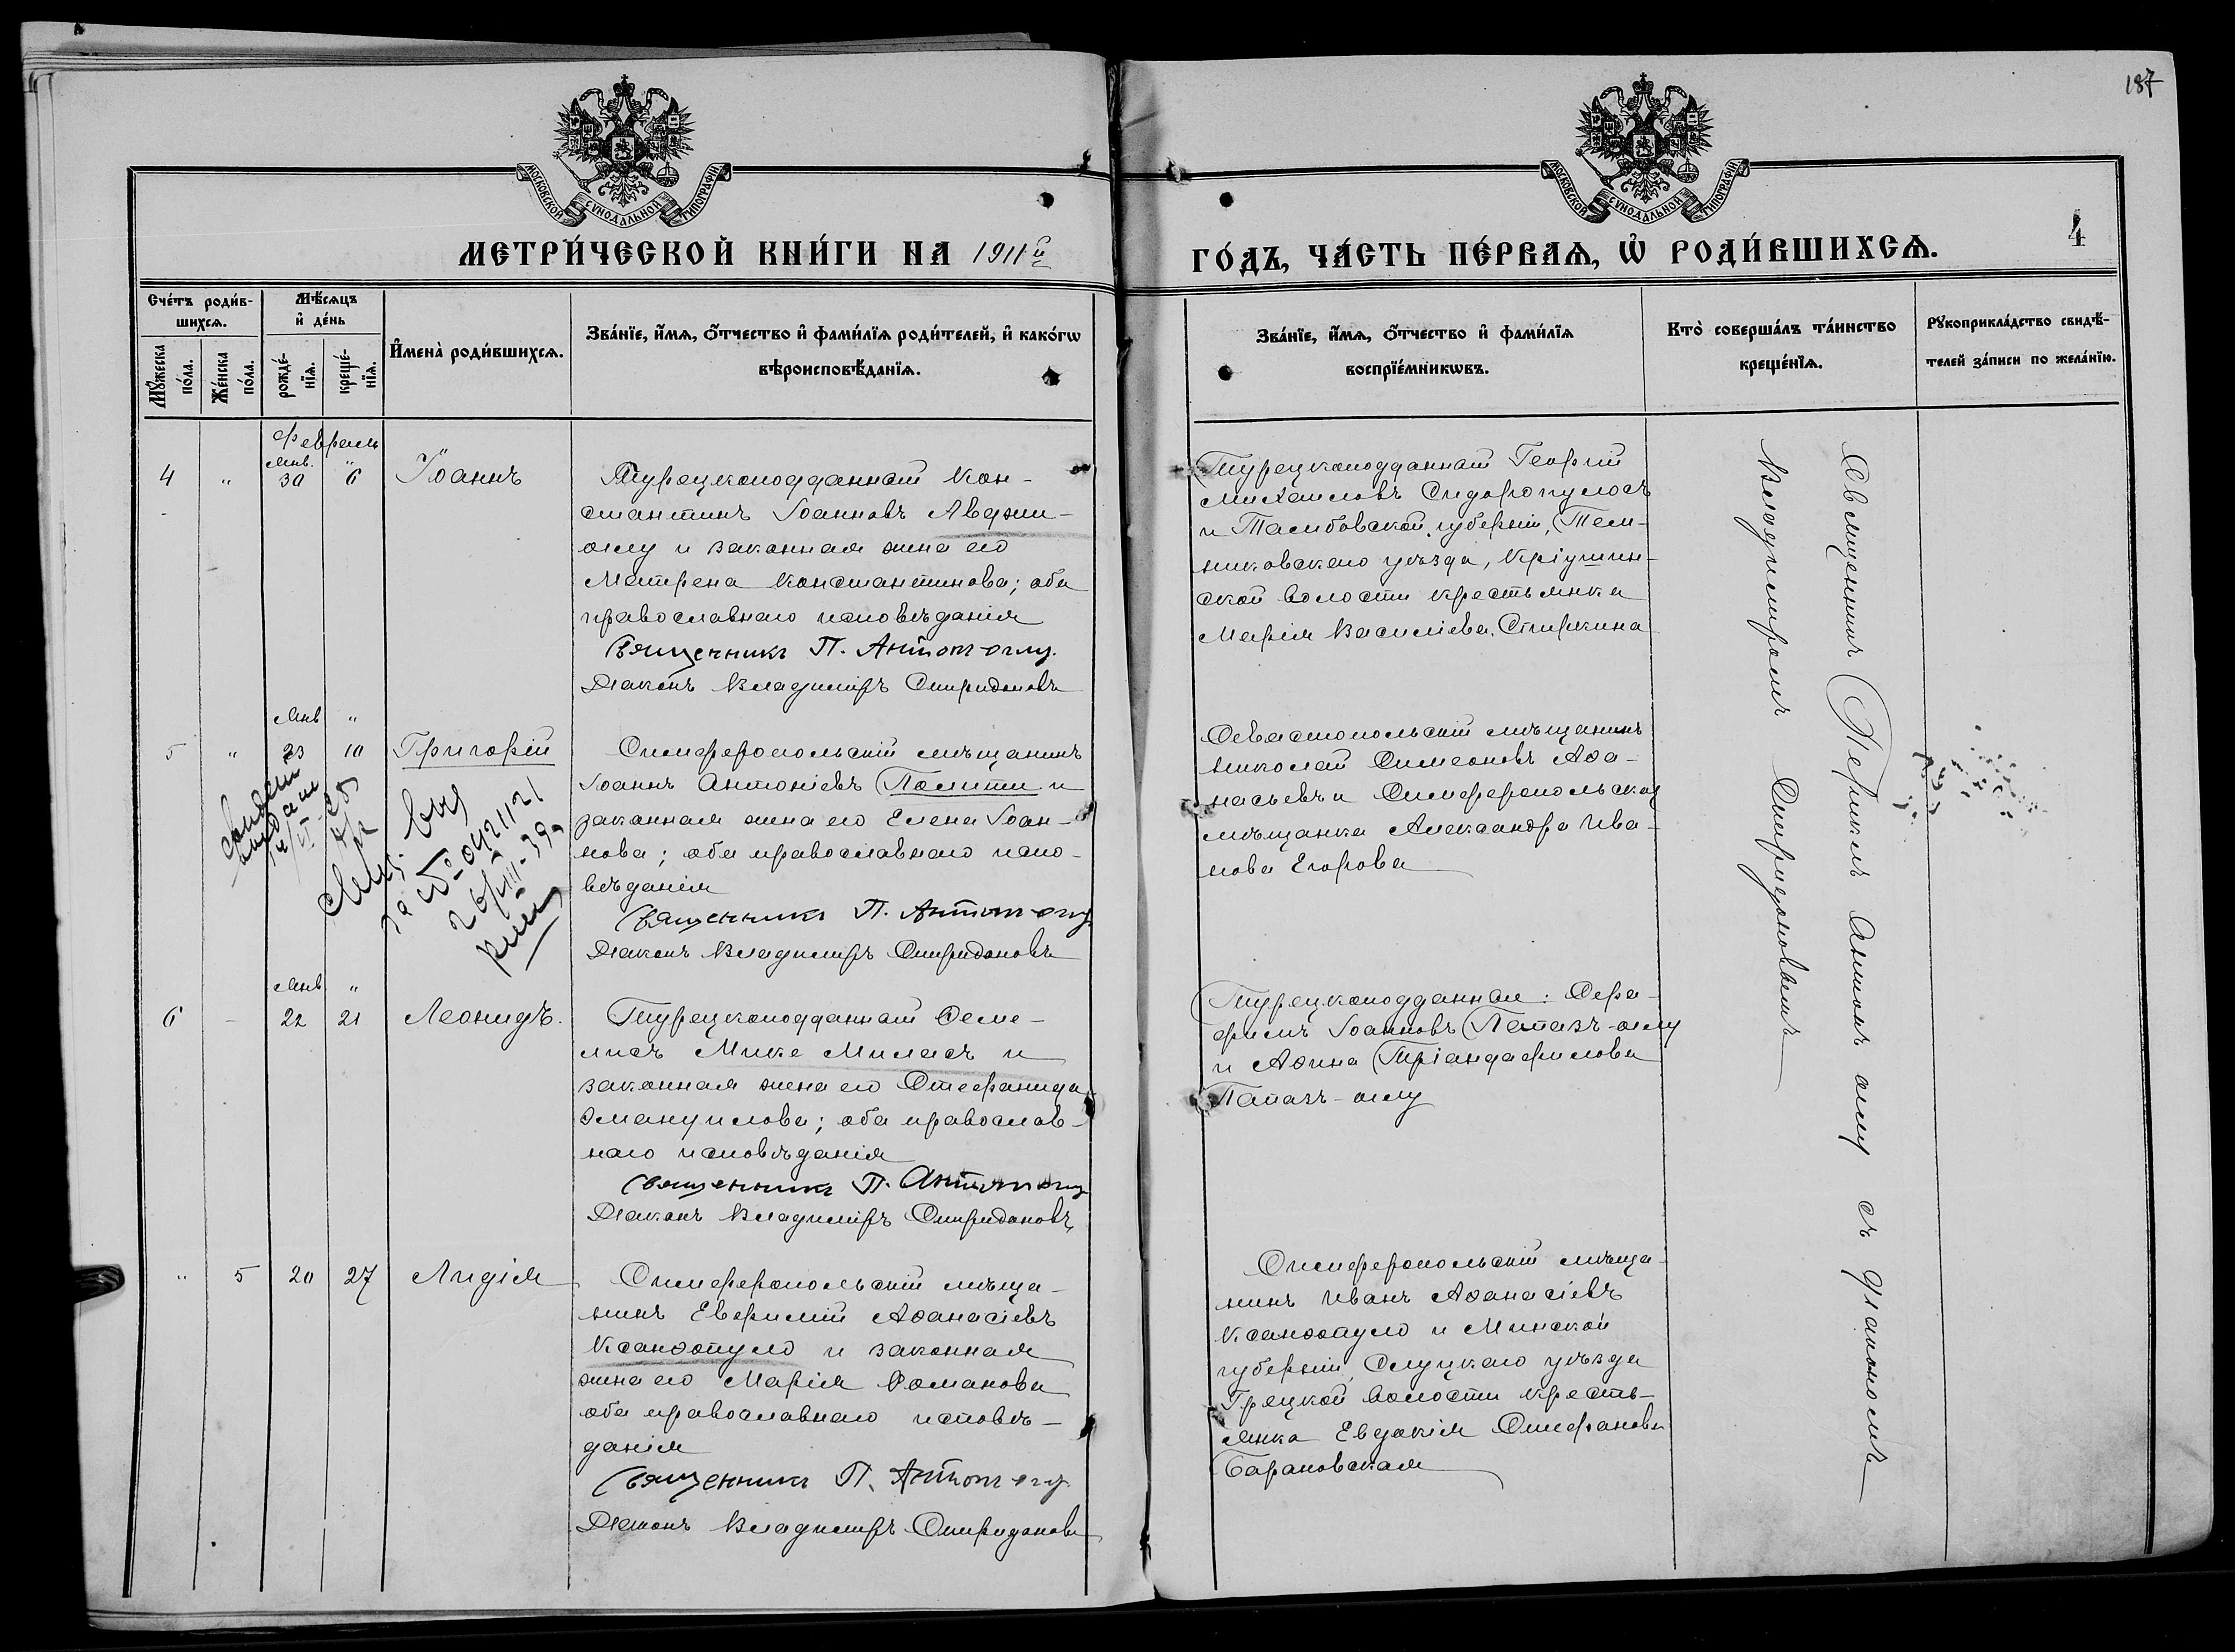 187
МОСКОВСКОЙ СѴНОДАЛЬНОЙ ТИПОГРАФІИ
МОСКОВСКОЙ СѴНОДАЛЬНОЙ ТИПОГРАФІИ
МЕТРИ́ЧЕСКОЙ КНИ́ГИ НА 1911й
ГО́ДЪ, ЧА́СТЬ ПЕ́РВАѦ, Ѡ҆ РОДИ́ВШИХСѦ.
4
Сче́тъ роди́в-
шихсѧ.
Мꙋ́жеска по́ла.
Же́нска по́ла.
Мѣ́сѧцъ
и҆ де́нь
рожде́-
нїѧ.
креще́-
нїѧ.
И҆мена̀ роди́вшихсѧ.
Зва́нїе, и҆́мѧ, ѻ҆́тчество и҆ фами́лїѧ роди́телей, и҆ како́гѡ
вѣроисповѣ́данїѧ.
Зва́нїе, и҆́мѧ, ѻ҆́тчество и҆ фами́лїѧ
воспрїе́мникѡвъ.
Кто̀ соверша́лъ та́инство
креще́нїѧ.
Рꙋкоприкла́дство свидѣ́-
телей за́писи по жела́нїю.
Февраль
Янв. "
4 " 30 6 Іоаннъ
Турецкоподданный Кон-
стантинъ Іоанновъ Авджи-
оглу и законная жена его
Матрена Константинова; оба
православнаго исповѣданія
Священникъ П. Антон-оглу.
Діаконъ Владиміръ Спиридоновъ
Турецкоподданный Георгій
Михаиловъ Сидоропулосъ
и Тамбовской губерніи, Тем-
никовскаго уѣзда, Кріушин-
ской волости крестьянка
Марія Василіева Спиркина
Янв "
5 " 23 10 Григорій
Симферопольскій мѣщанинъ
Іоаннъ Антоніевъ Полити и
законная жена его Елена Іоан-
нова; оба православнаго испо-
вѣданія
Священникъ П. Антон-оглу
Діаконъ Владиміръ Спиридоновъ
Севастопольскій мѣщанинъ
Николай Симеоновъ Аѳа-
насьевъ и Симферопольская
мѣщанка Александра Ива-
нова Егорова
выдан
за № 0421121
26/VIII-39 г
Янв "
6 - 22 21 Леонидъ.
Турецкоподданный Семе-
лисъ Мике Миласъ и
законная жена его Стефанида
Эмануилова; оба православ-
наго исповѣданія
Священникъ П. Антон-оглу
Діаконъ Владиміръ Спиридоновъ
Турецкоподданные: Сера-
фимъ Іоанновъ Папазъ-оглу
и Аѳина Тріандафилова
Папазъ-оглу
" 5 20 27 Лидія
Симферопольскій мѣща-
нинъ Евфимій Аѳанасіевъ
Ксанѳопуло и законная
жена его Марія Романова
оба православнаго исповѣ-
данія
Священникъ П. Антон-оглу
Діаконъ Владиміръ Спиридоновъ
Симферопольскій мѣща-
нинъ Иванъ Аѳанасіевъ
Ксанѳопуло и Минской
губерніи, Слуцкаго уѣзда
Грецкой волости кресть-
янка Евдокія Стефанова
Барановская
Священникъ Периклъ Антонъ оглу съ діакономъ
Владиміромъ Спиридоновымъ